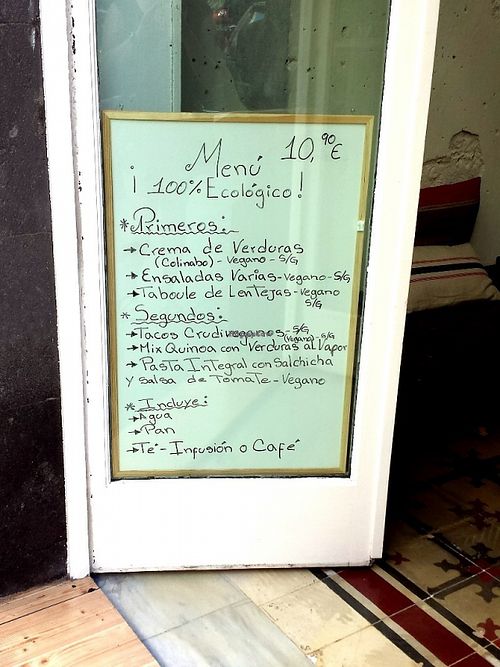 Menú 10,90€
¡100% Ecológico!
*Primeros:
→Crema de Verduras
(Colinabo) - Vegano - S/G
→Ensaladas Varias - Vegano - S/G
→Taboule de Lentejas - Vegano
S/G
*Segundos:
→Tacos Crudiveganos - S/G
→Mix Quinoa con Verduras al Vapor
(Vegano) S/G
→Pasta Integral con Salchicha
y salsa de Tomate - Vegano
*Incluye:
→Agua
→Pan
→Té - Infusión o Café